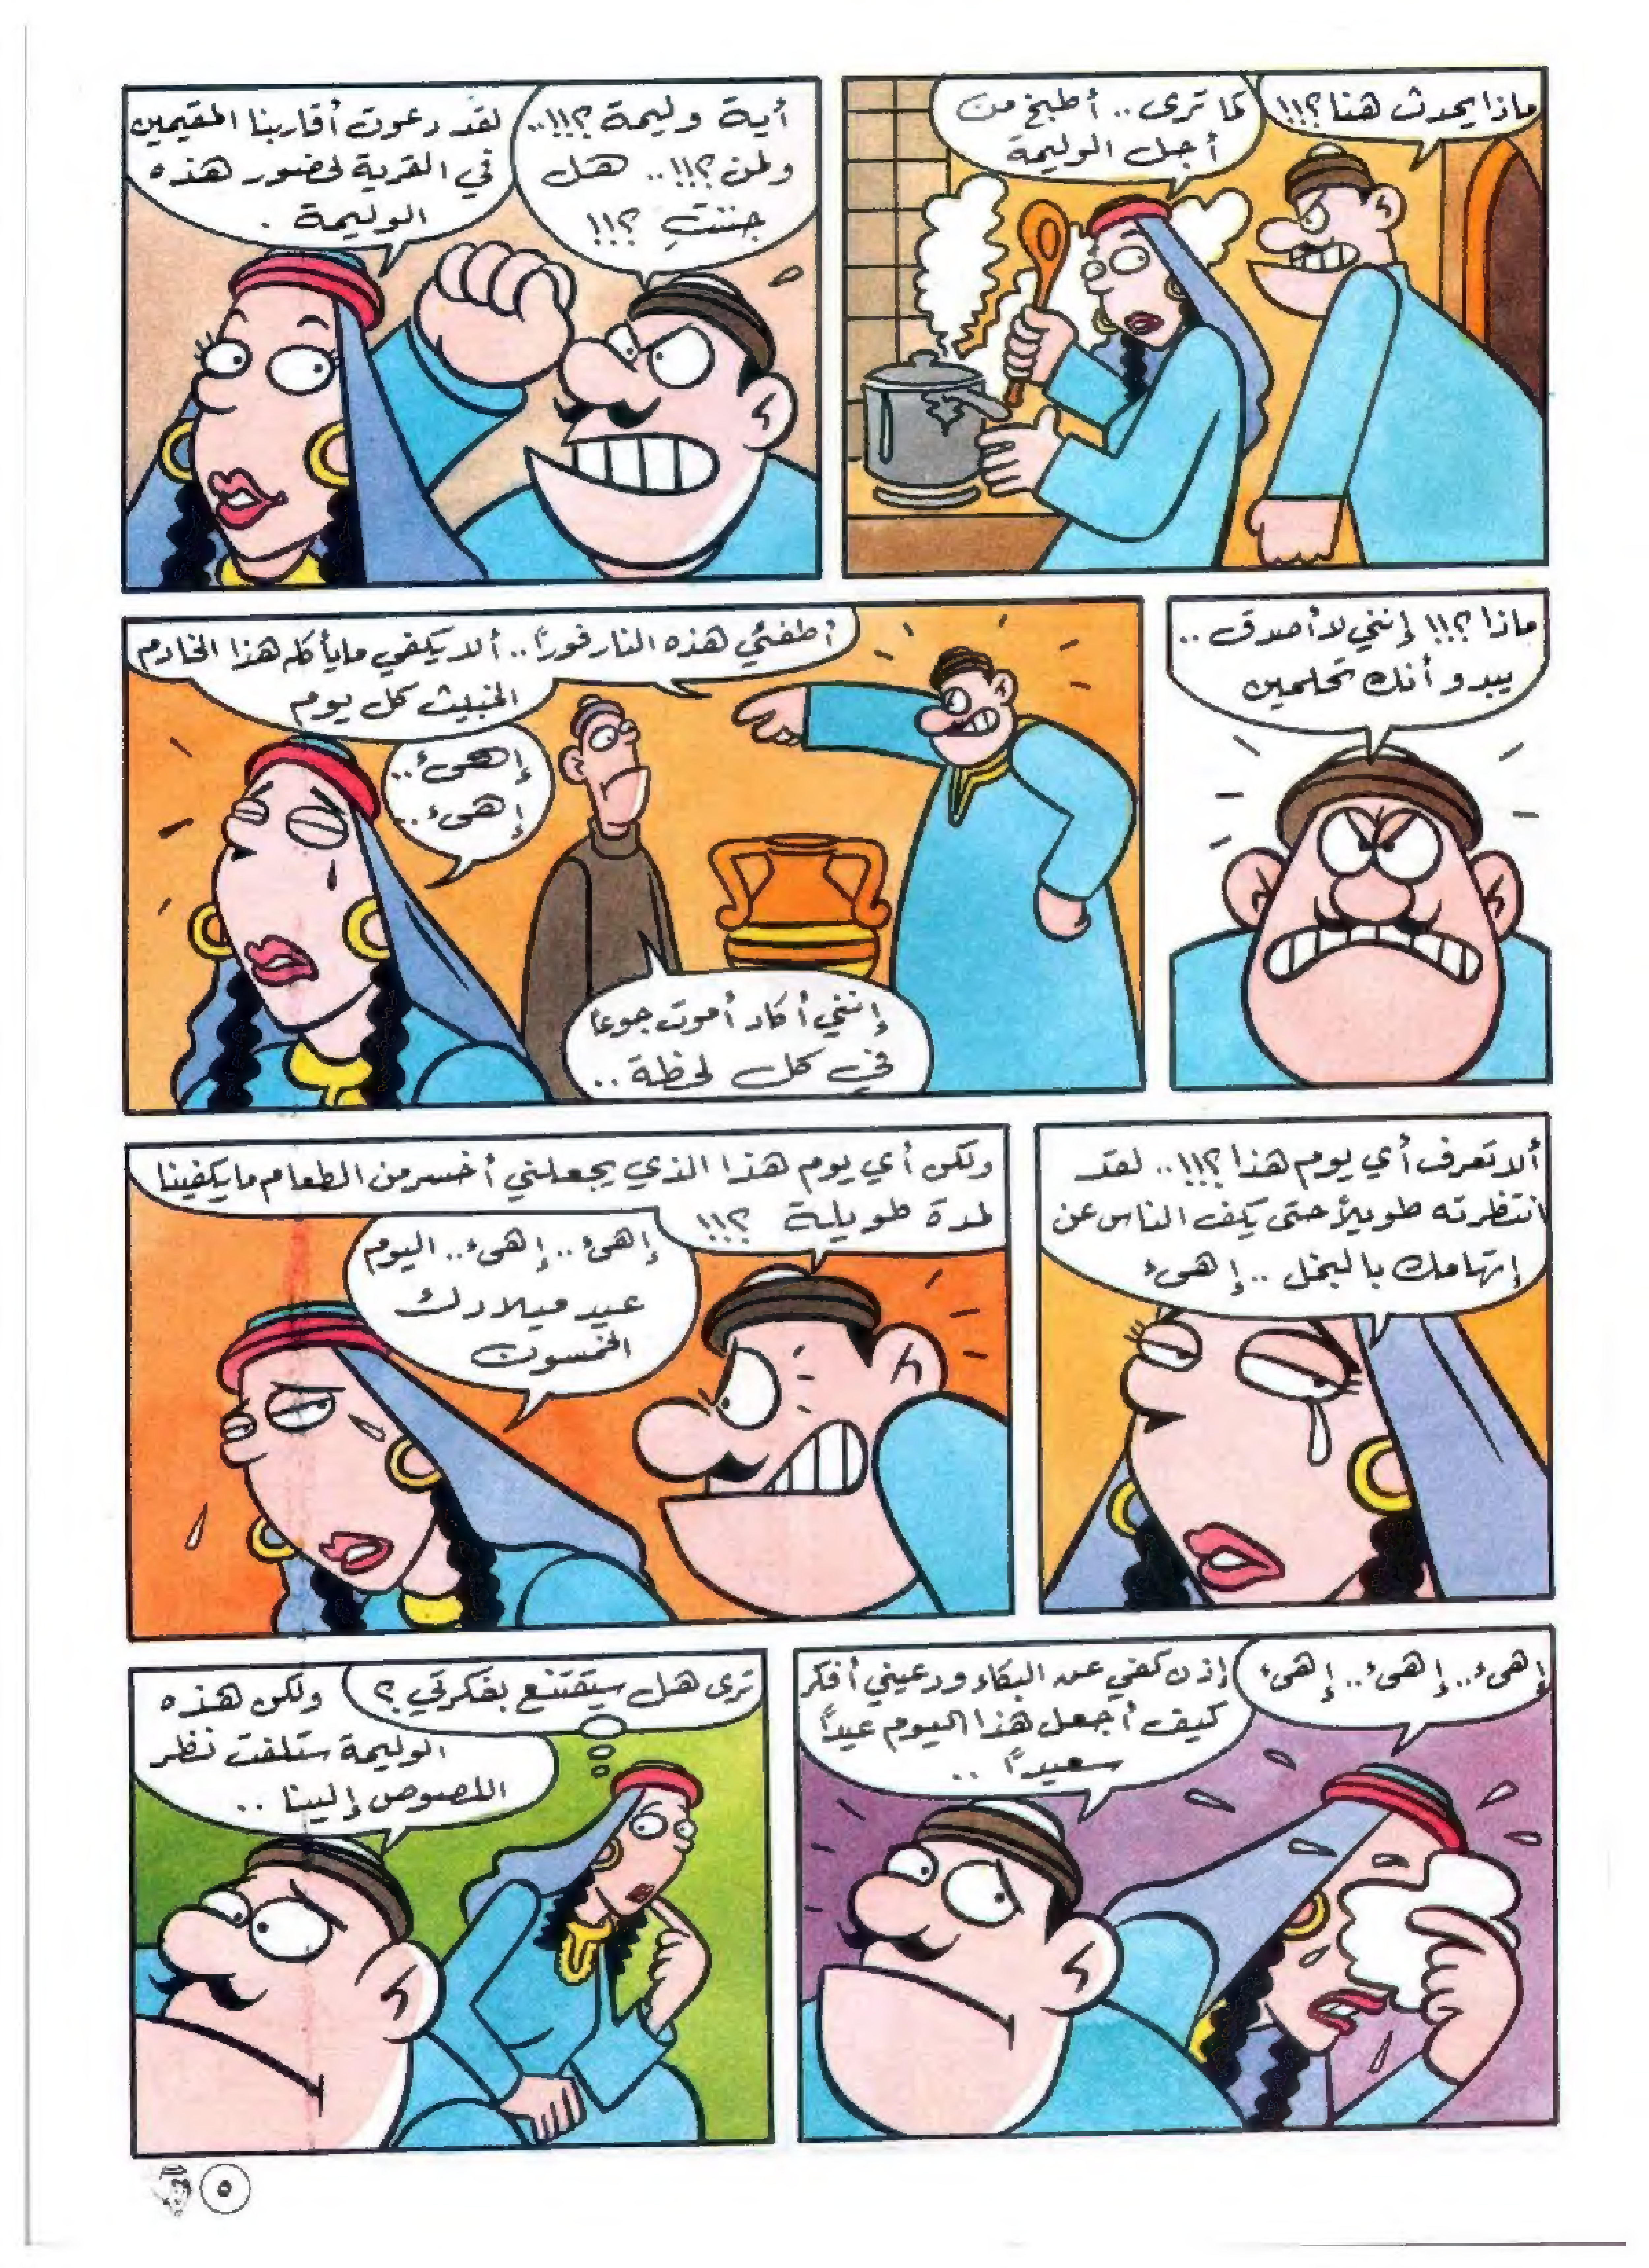 ماذا يحدث هنا؟!!!
كما ترى.. أطبخ من
أجل الوليمة
أية وليمة؟!!!..
ولمن؟!!!.. هل
جننتِ؟!!
لقد دعوت أقاربنا المقيمين
في القرية لحضور هذه
الوليمة.
ماذا؟!!! إنني لا أصدق..
يبدو أنك تحلمين
أطفئي هذه النار فوراً.. ألا يكفي ما يأكله هذا الخادم
الخبيث كل يوم
إهىء..
إهىء..
إنني أكاد أموت جوعا
في كل لحظة..
ألا تعرف أي يوم هذا؟!!!.. لقد
انتظرته طويلاً حتى يكف الناس عن
إتهامك بالبخل.. إهىء
ولكن أي يوم هذا الذي يجعلني أخسر من الطعام ما يكفينا
لمدة طويلة ؟!!!
إهىء.. إهىء.. اليوم
عيد ميلادك
الخمسون
إهىء.. إهىء.. إهىء
إذن كفي عن البكاء ودعيني أفكر
كيف أجعل هذا اليوم عيداً
سعيداً..
ترى هل سيقتنع بفكرتي؟
ولكن هذه
الوليمة ستلفت نظر
اللصوص إلينا..
٥